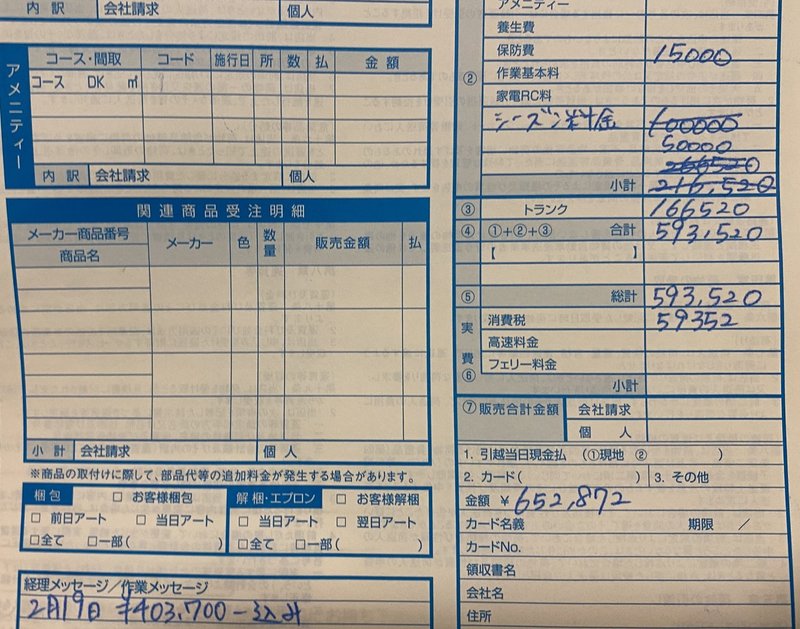 内 訳 会社請求 個人
アメニティー
コース・間取 コード 施行日 所 数 払 金 額
コース DK ㎡
内 訳 会社請求 個人
関連商品受注明細
メーカー商品番号 メーカー 色 数量 販売金額 払
商品名
小 計 会社請求 個 人
※商品の取付けに際して、部品代等の追加料金が発生する場合があります。
梱包 □ お客様梱包
□ 前日アート □ 当日アート
□全て □一部( )
解 梱・エプロン □ お客様解梱
□ 当日アート □ 翌日アート
□全て □一部( )
経理メッセージ/作業メッセージ
2月19日 ¥403,700-込み
アメニティー
養生費
② 保防費 15000
作業基本料
家電RC料
シーズン料金 100000
50000
266520
小計 216,520
③ トランク 166520
④ ①+②+③ 合計 593,520
【 】
⑤ 総計 593,520
実費⑥
消費税 59352
高速料金
フェリー料金
小計
⑦ 販売合計金額 会社請求
個 人
1. 引越当日現金払 (①現地 ② )
2. カード( ) 3. その他
金額 ¥ 652,872
カード名義 期限 /
カードNo.
領収書名
会社名
住所